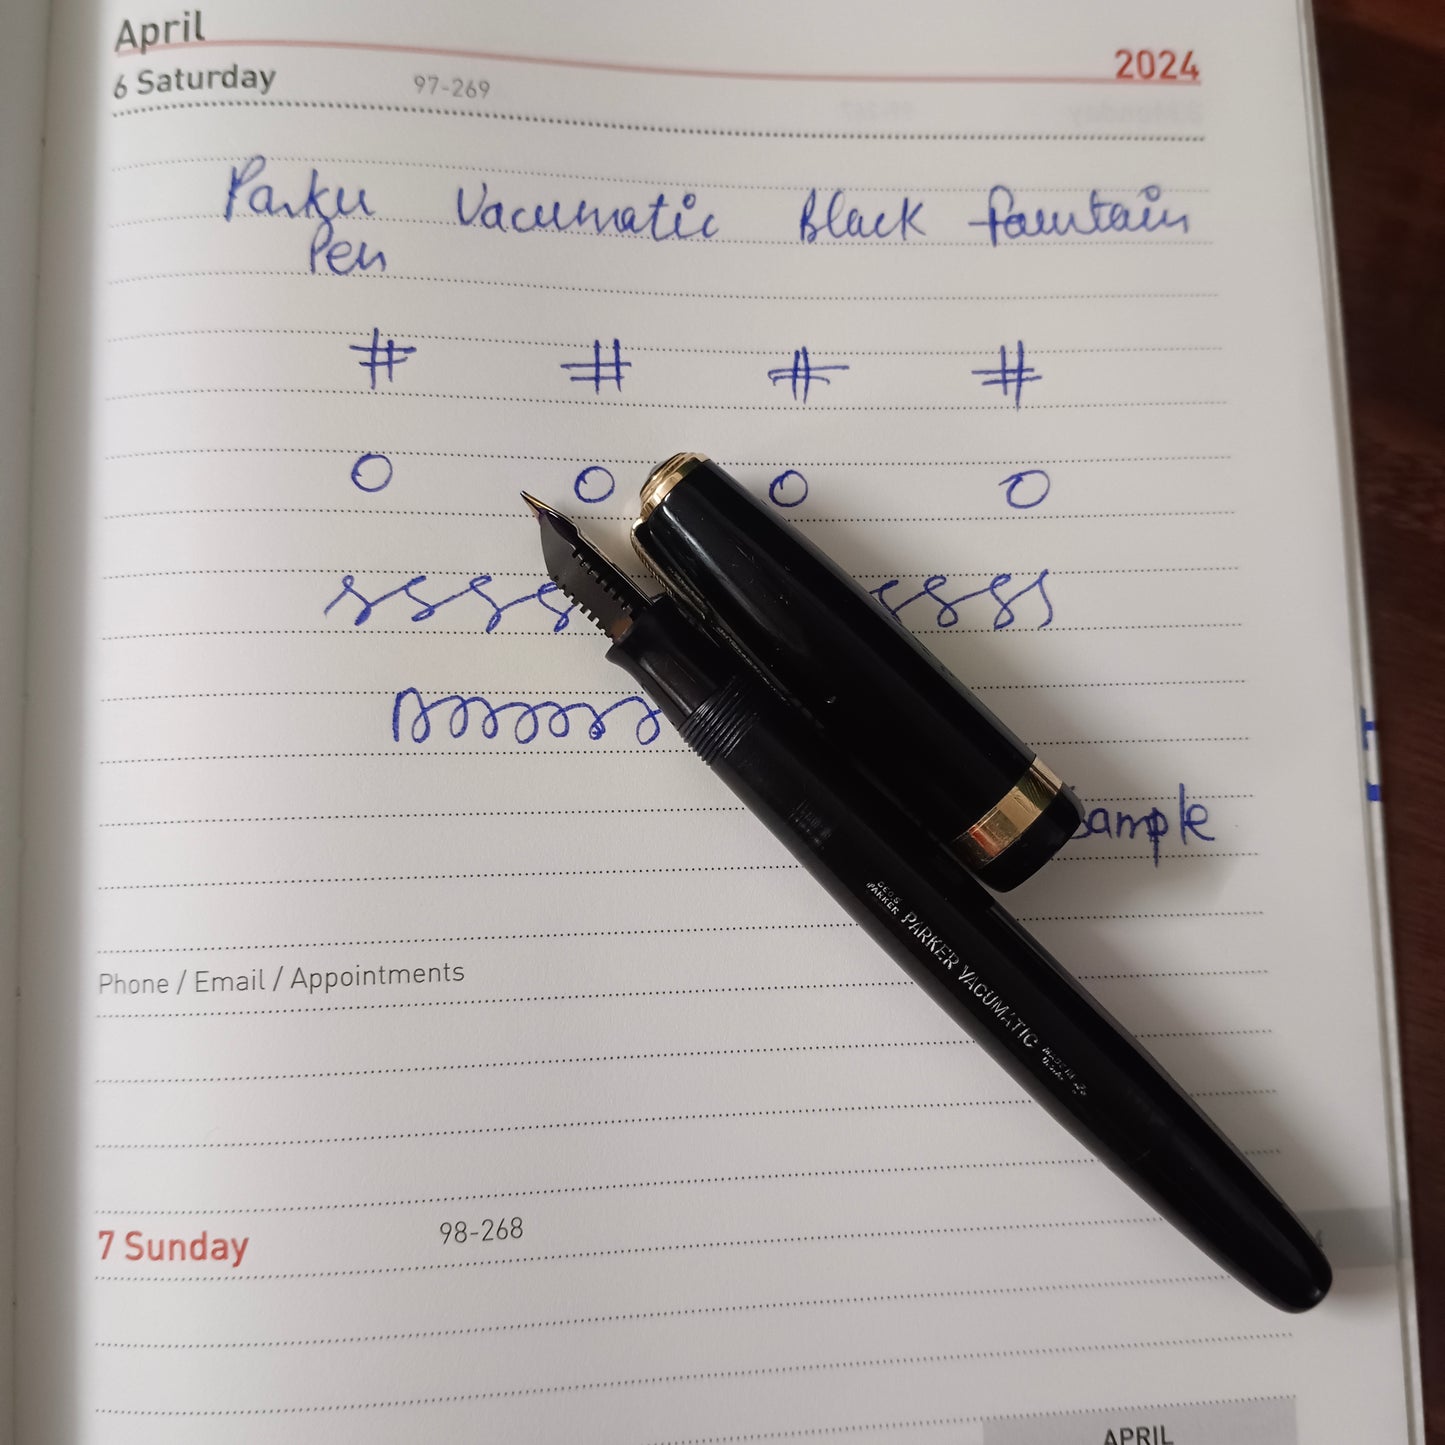 April
2024
6 Saturday 97-269
Parker Vacuumatic Black Fountain
Pen
# # # #
O O O O
Sample
GEO.S
PARKER
PARKER VACUMATIC
MADE IN
U.S.A.
Phone / Email / Appointments
7 Sunday 98-268
APRIL